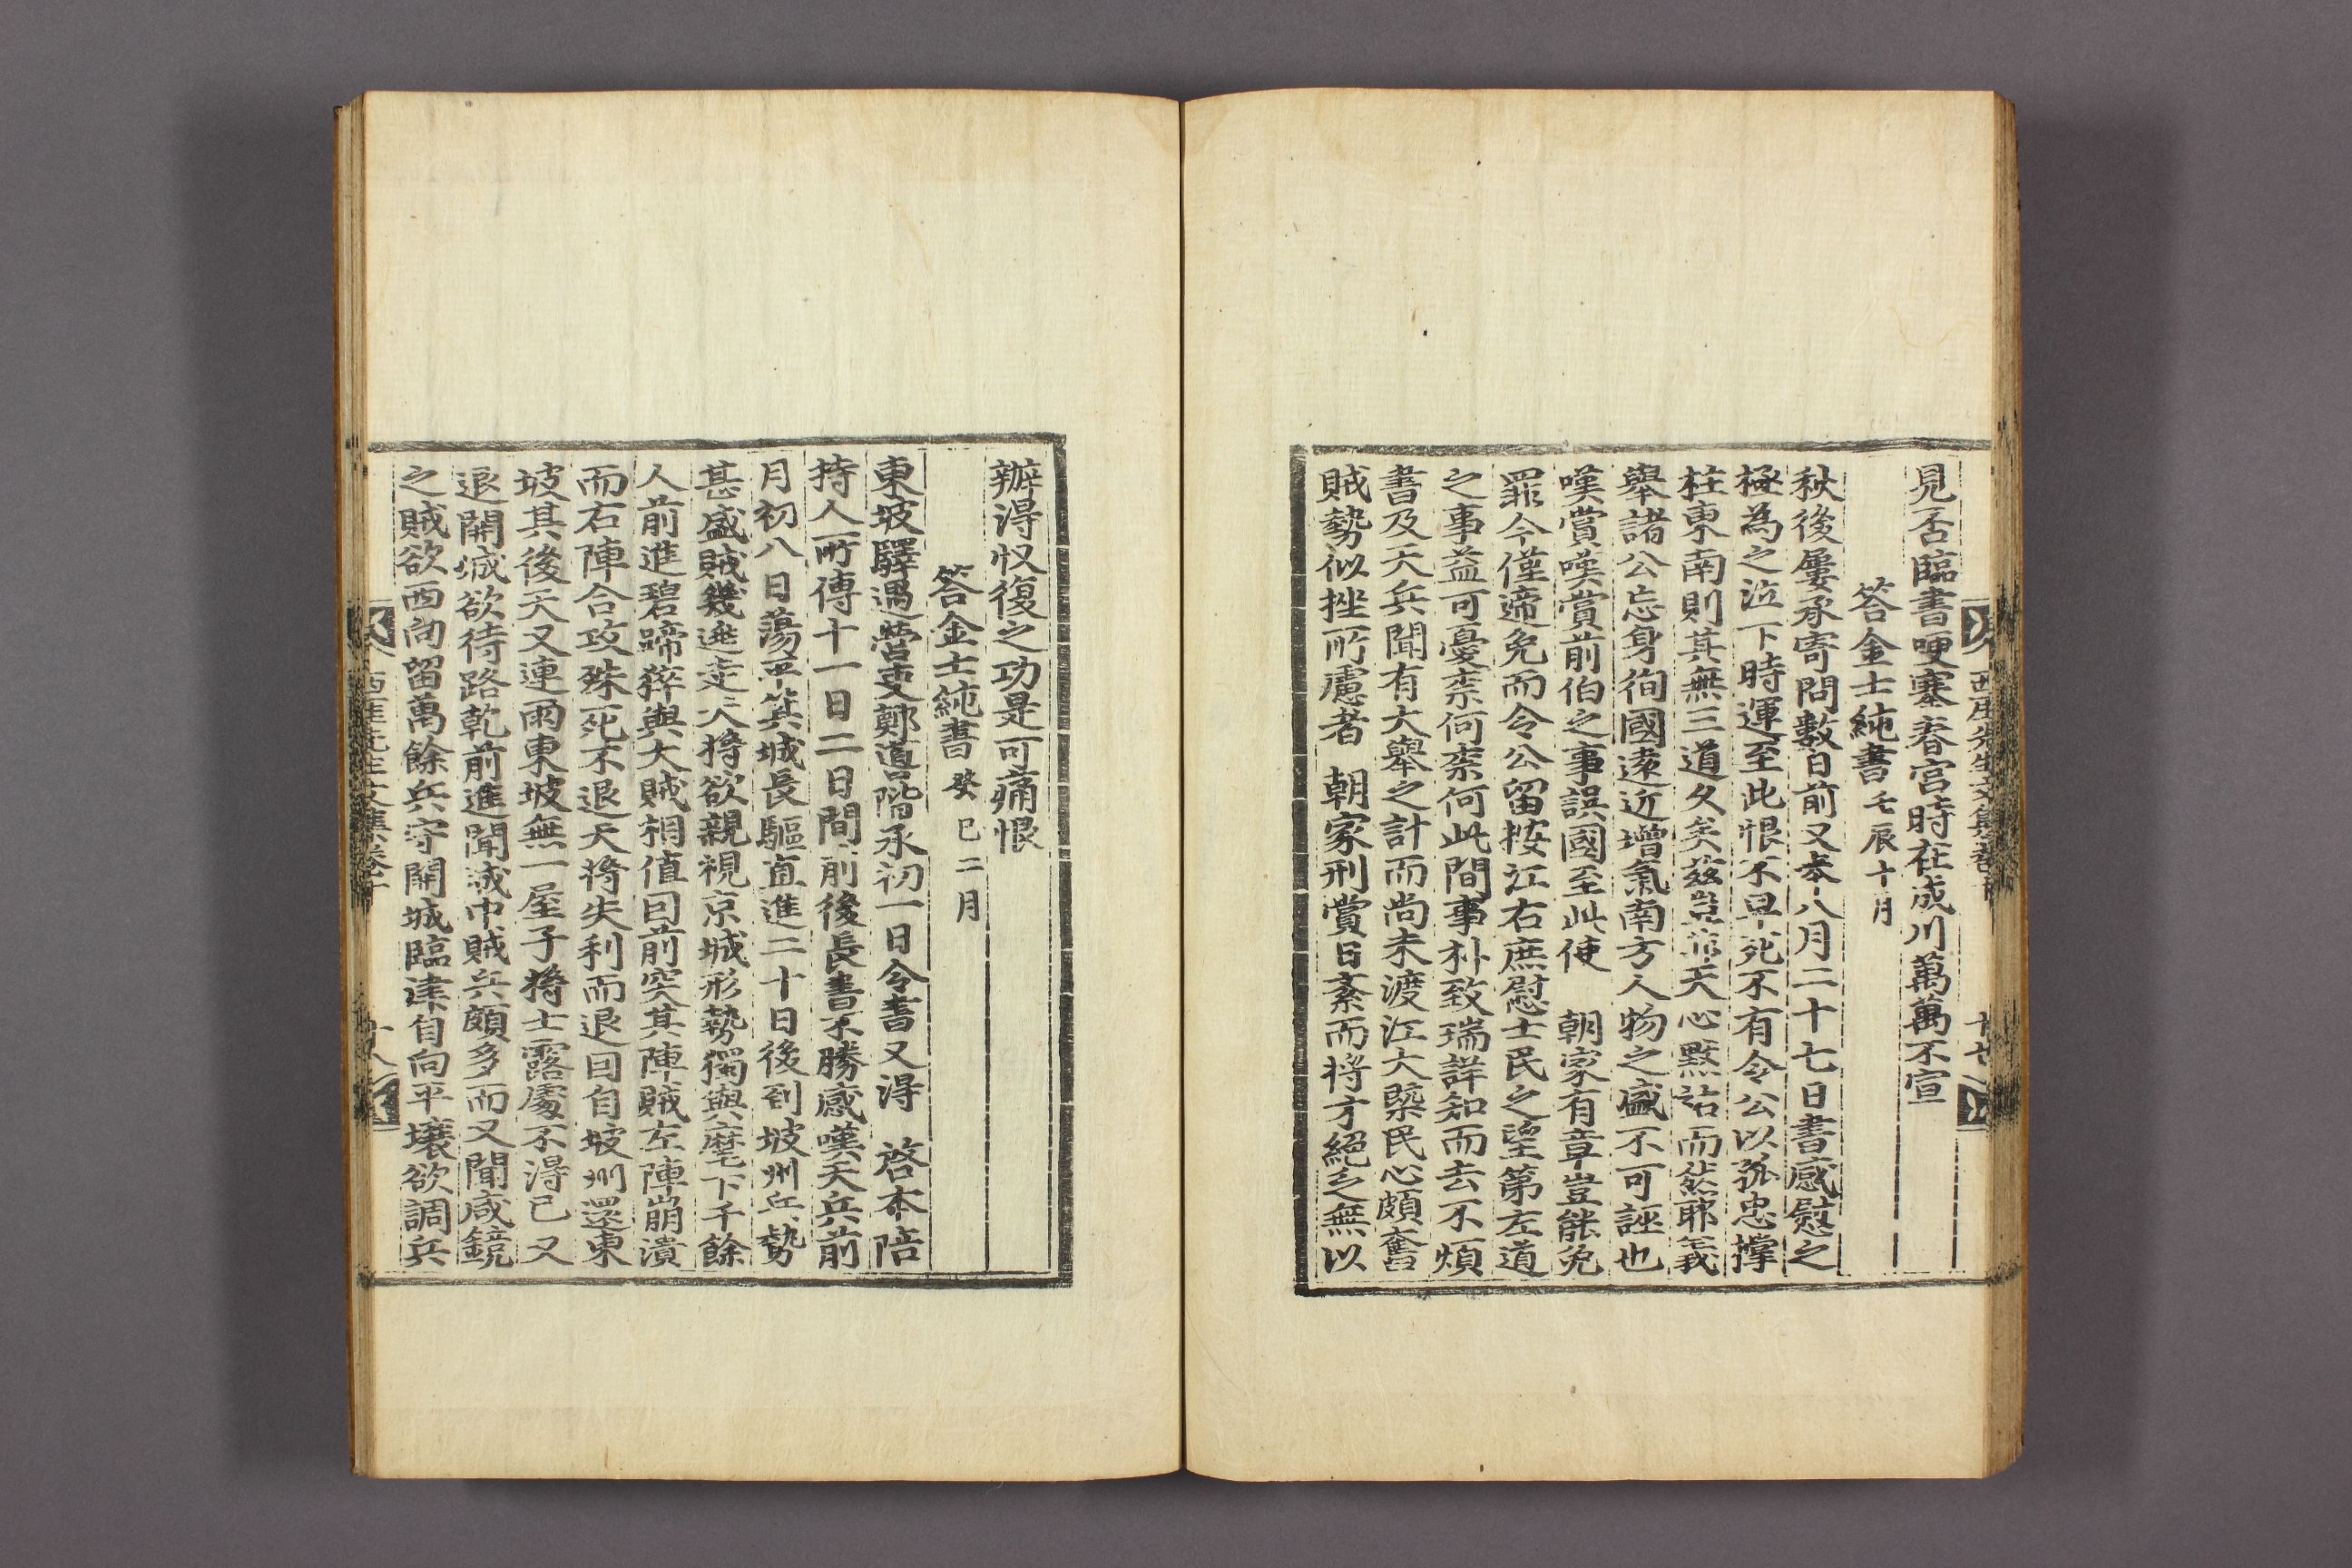 見否臨書哽塞春宮時在成川萬萬不宣
答金士純書 壬辰十月
秋後屢承寄問數日前又奉八月二十七日書感慰之
極為之泣下時運至此恨不早死不有令公以孤忠撑
柱東南則其無三道久矣玆豈非天心黙祐而然耶義
舉諸公忘身徇國遠近增氣南方人物之盛不可誣也
嘆賞嘆賞前伯之事誤國至此使 朝家有章豈能免
罪今僅遞免而令公留按江右庶慰士民之望第左道
之事益可憂柰何柰何此間事朴致瑞詳知而去不煩
書及天兵聞有大舉之計而尚未渡江大槩民心頗奮
賊勢似挫所慮者 朝家刑賞日紊而將才絕乏無以
西厓先生文集卷十
十七
辦得收復之功是可痛恨
答金士純書 癸巳二月
東坡驛遇營吏鄭道階承初一日令書又得 啓本陪
持人所傳十一日二日間前後長書不勝感嘆天兵前
月初八日蕩平箕城長驅直進二十日後到坡州兵勢
甚盛賊幾逃走天將欲親視京城形勢獨與麾下千餘
人前進碧蹄猝與大賊相值曰前突其陣賊左陣崩潰
而右陣合攻殊死不退天將失利而退回自坡州還東
坡其後天又連雨東坡無一屋子將士露處不得已又
退開城欲待路乾前進聞城中賊兵頗多而又聞咸鏡
之賊欲西向留萬餘兵守開城臨津自向平壤欲調兵
西厓先生文集卷十
十八